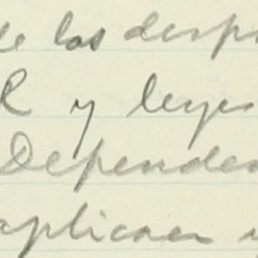 de los desp
R y leyes
Dependen
aplicar